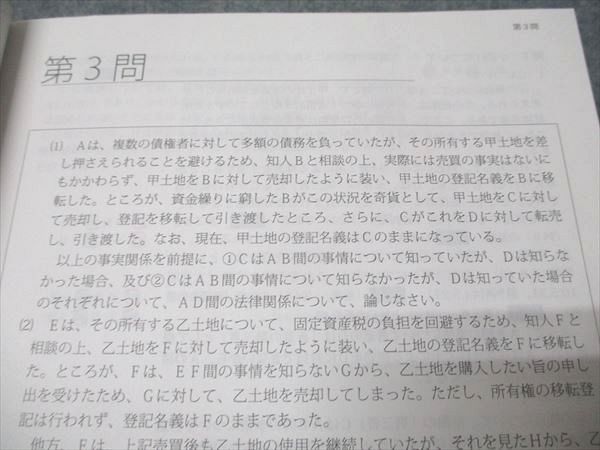 第3問
第3問
(1) Aは、複数の債権者に対して多額の債務を負っていたが、その所有する甲土地を差
し押さえられることを避けるため、知人Bと相談の上、実際には売買の事実はないに
もかかわらず、甲土地をBに対して売却したように装い、甲土地の登記名義をBに移
転した。ところが、資金繰りに窮したBがこの状況を奇貨として、甲土地をCに対し
て売却し、登記を移転して引き渡したところ、さらに、CがこれをDに対して転売
し、引き渡した。なお、現在、甲土地の登記名義はCのままになっている。
以上の事実関係を前提に、①CはAB間の事情について知っていたが、Dは知らな
かった場合、及び②CはAB間の事情について知らなかったが、Dは知っていた場合
のそれぞれについて、AD間の法律関係について、論じなさい。
(2) Eは、その所有する乙土地について、固定資産税の負担を回避するため、知人Fと
相談の上、乙土地をFに対して売却したように装い、乙土地の登記名義をFに移転し
た。ところが、Fは、EF間の事情を知らないGから、乙土地を購入したい旨の申し
出を受けたため、Gに対して、乙土地を売却してしまった。ただし、所有権の移転登
記は行われず、登記名義はFのままであった。
他方、Eは、上記売買後も乙土地の使用を継続していたが、それを見たHから、乙